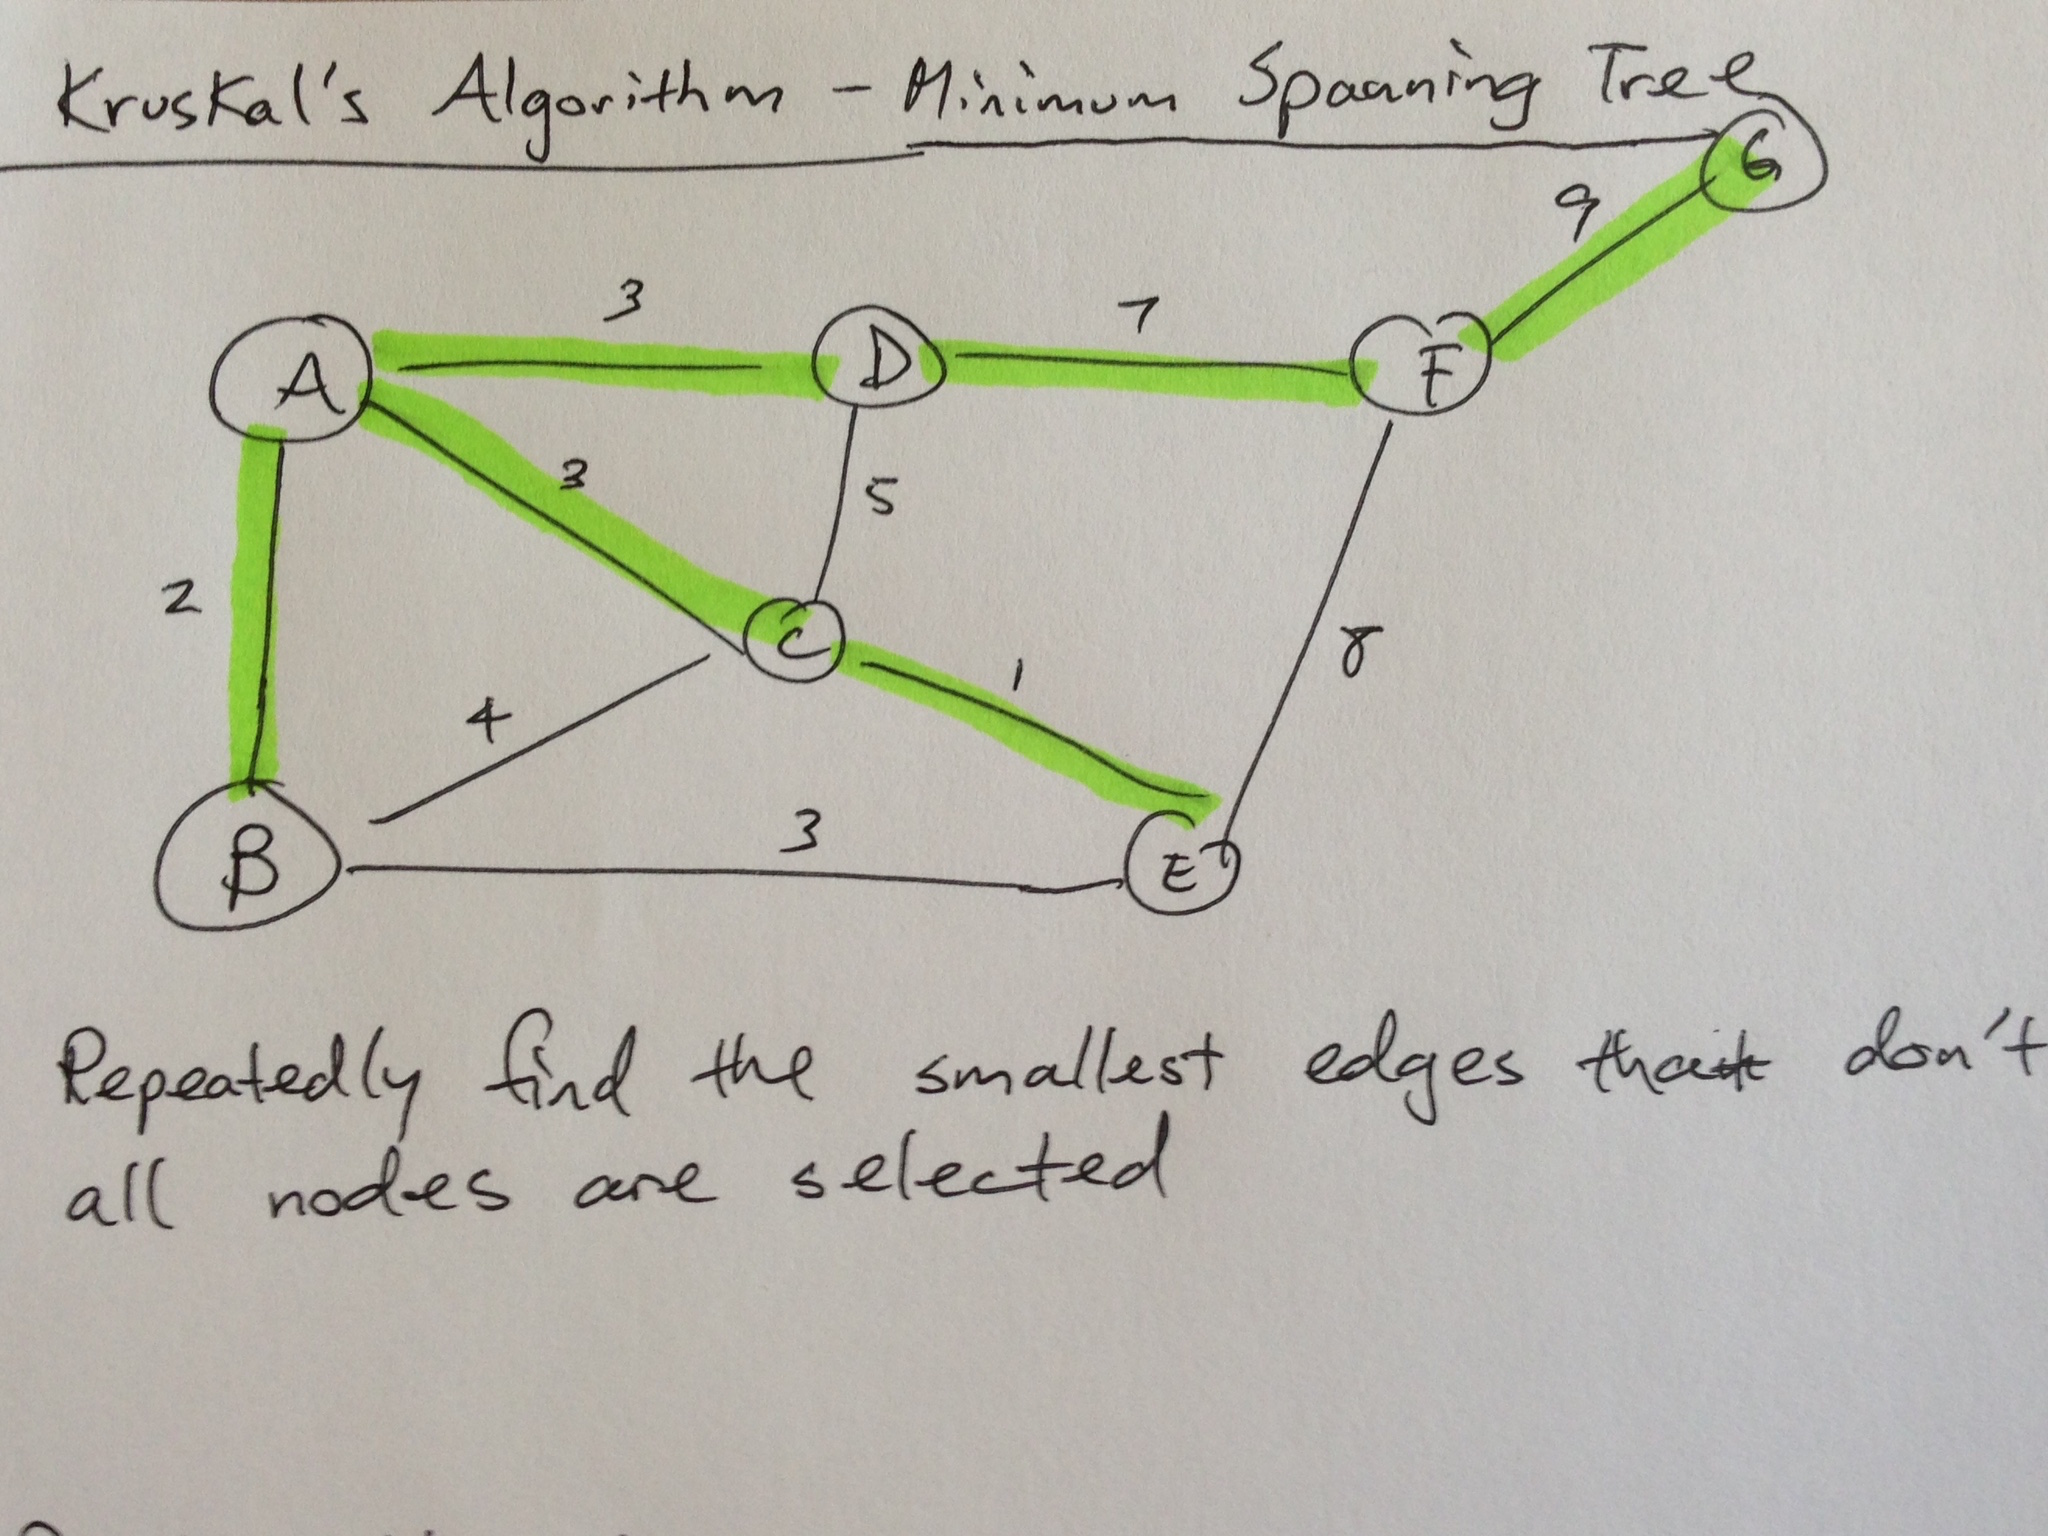 Kruskal's Algorithm - Minimum Spanning Tree
G
9
3
7
A
D
F
3
5
2
C
8
1
4
3
B
E
Repeatedly find the smallest edges that don't
all nodes are selected